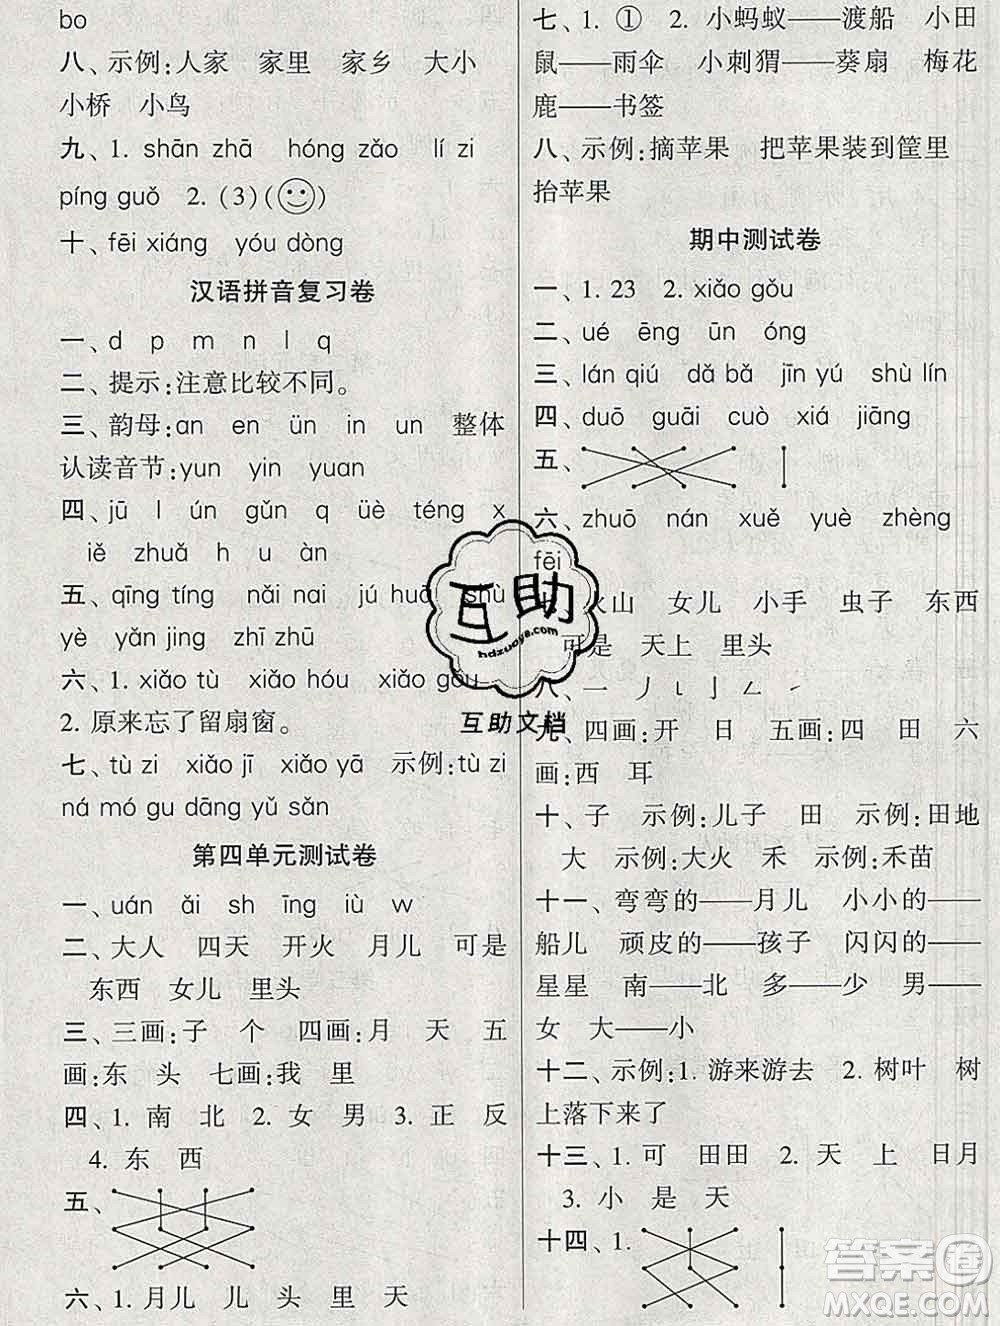 bo
八、示例:人家 家里 家乡 大小
小桥 小鸟
九、1. shān zhā hóng zǎo lí zi
píng guǒ 2. (3)( )
十、fēi xiáng yóu dòng
汉语拼音复习卷
一、d p m n l q
二、提示:注意比较不同。
三、韵母:an en ün in un 整体
认读音节:yun yin yuan
四、jū l ún gǔn q üè téng x
iě zhuǎ h u àn
五、qīng tíng nǎi nai jú huā shù
yè yǎn jing zhī zhū
六、1. xiǎo tù xiǎo hóu xiǎo gǒu
2. 原来忘了留扇窗。
七、tù zi xiǎo jī xiǎo yā 示例:tù zi
ná mó gu dāng yǔ sǎn
第四单元测试卷
一、uán ǎi sh īng iù w
二、大人 四天 开火 月儿 可是
东西 女儿 里头
三、三画:子 个 四画:月 天 五
画:东 头 七画:我 里
四、1. 南 北 2. 女 男 3. 正 反
4. 东 西
五、
六、1. 月儿 儿 头 里 天
七、1. ① 2. 小蚂蚁——渡船 小田
鼠——雨伞 小刺猬——葵扇 梅花
鹿——书签
八、示例:摘苹果 把苹果装到筐里
抬苹果
期中测试卷
一、1. 23 2. xiǎo gǒu
二、ué ēng ūn óng
三、lán qiú dǎ bǎ jīn yú shù lín
四、duō guāi cuò xiá jiāng
五、
六、zhuō nán xuě yuè zhèng
fēi
火山 女儿 小手 虫子 东西
可是 天上 里头
八、一 丿
九、四画:开 日 五画:四 田 六
画:西 耳
十、子 示例:儿子 田 示例:田地
大 示例:大火 禾 示例:禾苗
十一、弯弯的——月儿 小小的——
船儿 顽皮的——孩子 闪闪的——
星星 南——北 多——少 男——
女 大——小
十二、示例:1. 游来游去 2. 树叶 树
上落下来了
十三、1. 可 田田 2. 天 上 日月
3. 小 是 天
十四、1.
互助
hdzuoye.com
互助文档
答案圈
MXQE.COM